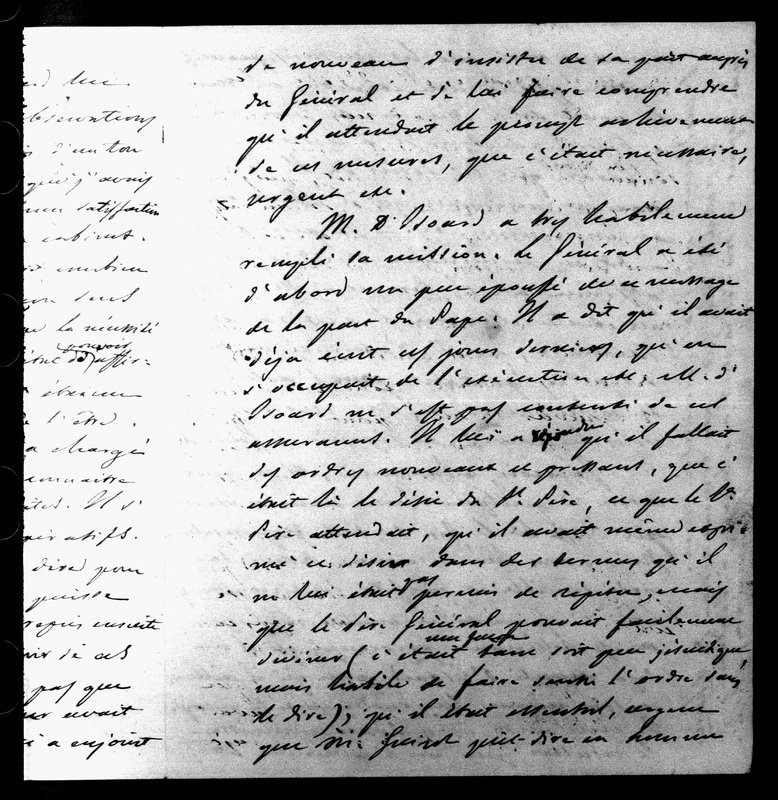 rd lui
bservations
s d'un ton
que j'avais
mon satisfaction
cabinet.
combien
son seul
ue la nécessité
pouvoir
affir-
ébranlé
l'être.
a chargé
connaître
Il s'
ératifs.
dire pour
puisse
repris ensuite
de ces
pas que
ur avait
i a enjoint
de nouveau d'insister de sa part auprès
du Général et de lui faire comprendre
qu'il attendait le prompt achèvement
de ces mesures, que c'était nécessaire,
urgent etc.
M. D'Isoard a très habilement
rempli sa mission. Le Général a été
d'abord un peu épouffé de ce message
de la part du Pape. Il a dit qu'il avait
déjà écrit ces jours derniers, qu'on
s'occupait de l'exécution etc. M. d'
Isoard ne s'est pas contenté de ces
assurances. Il lui a répondu qu'il fallait
des ordres nouveaux et pressans, que c'
était là le désir du St. Père, ce que le St.
Père attendait, qu'il avait même expri-
mé ce désir dans des termes qu'il
ne lui était pas permis de répéter, mais
que le Père Général pouvait facilement
deviner (c'était une façon tant soit peu jésuitique
mais habile de faire sentir l'ordre sans
le dire); qu'il était essentiel, urgent
que Mr. Guizot pût dire en homme